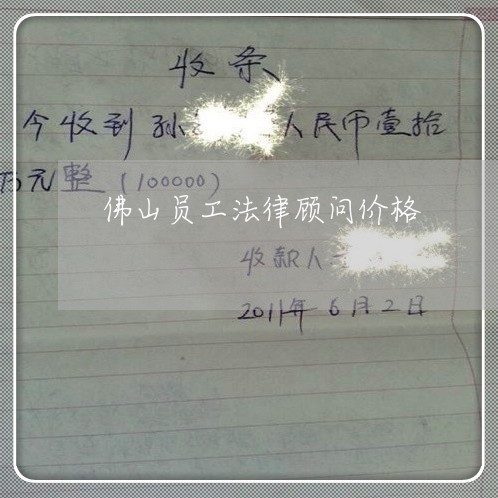 收条
今收到孙 人民币壹拾
万元整(100000)
佛山员工法律顾问价格
收款人
2011年6月2日